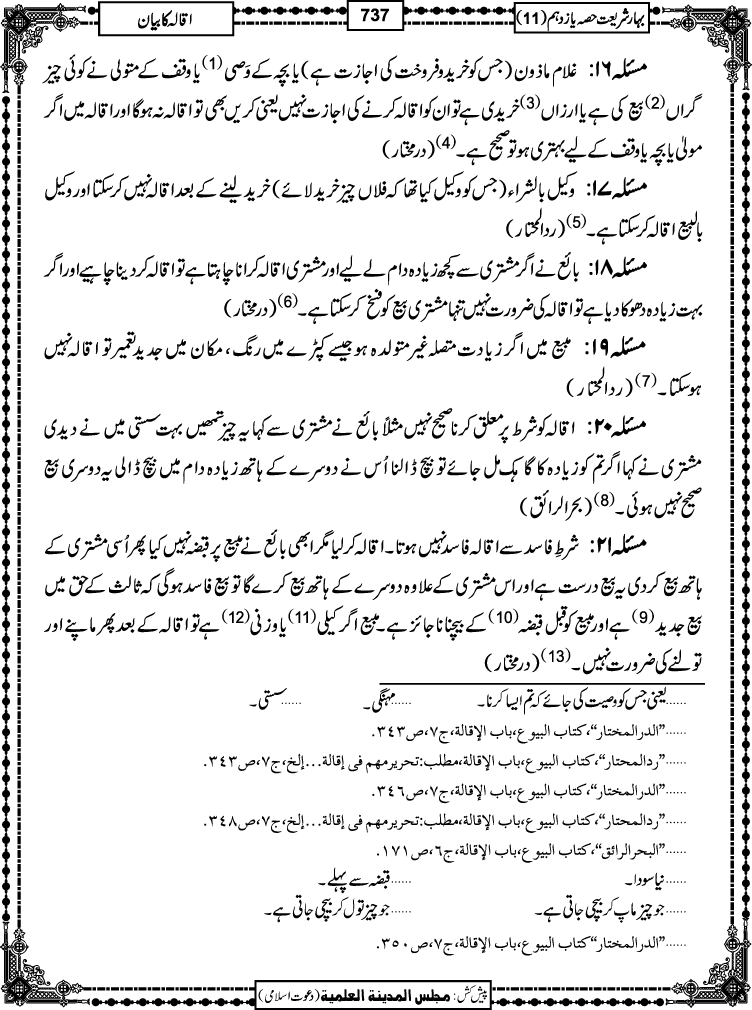 بہارِ شریعت حصہ یازدہم (11)
737
اقالہ کا بیان
مسئلہ ۱۶: غلام ماذون (جس کو خرید و فروخت کی اجازت ہے) یا بچہ کے وَصی (1) یا وقف کے متولی نے کوئی چیز
گراں (2) بیع کی ہے یا ارزاں (3) خریدی ہے تو ان کو اقالہ کرنے کی اجازت نہیں یعنی کریں بھی تو اقالہ نہ ہوگا اور اقالہ میں اگر
مولیٰ یا بچہ یا وقف کے لیے بہتری ہو تو صحیح ہے۔ (4) (درمختار)
مسئلہ ۱۷: وکیل بالشراء (جس کو وکیل کیا تھا کہ فلاں چیز خرید لائے) خرید لینے کے بعد اقالہ نہیں کرسکتا اور وکیل
بالبیع اقالہ کرسکتا ہے۔ (5) (ردالمحتار)
مسئلہ ۱۸: بائع نے اگر مشتری سے کچھ زیادہ دام لے لیے اور مشتری اقالہ کرانا چاہتا ہے تو اقالہ کر دینا چاہیے اور اگر
بہت زیادہ دھوکا دیا ہے تو اقالہ کی ضرورت نہیں تنہا مشتری بیع کو فسخ کرسکتا ہے۔ (6) (درمختار)
مسئلہ ۱۹: مبیع میں اگر زیادت متصلہ غیر متولدہ ہو جیسے کپڑے میں رنگ، مکان میں جدید تعمیر تو اقالہ نہیں
ہوسکتا۔ (7) (ردالمحتار)
مسئلہ ۲۰: اقالہ کو شرط پر معلق کرنا صحیح نہیں مثلاً بائع نے مشتری سے کہا یہ چیز تمھیں بہت سستی میں نے دیدی
مشتری نے کہا اگر تم کو زیادہ کا گاہک مل جائے تو بیچ ڈالنا اُس نے دوسرے کے ہاتھ زیادہ دام میں بیچ ڈالی یہ دوسری بیع
صحیح نہیں ہوئی۔ (8) (بحرالرائق)
مسئلہ ۲۱: شرطِ فاسد سے اقالہ فاسد نہیں ہوتا۔ اقالہ کرلیا مگر ابھی بائع نے مبیع پر قبضہ نہیں کیا پھر اُسی مشتری کے
ہاتھ بیع کردی یہ بیع درست ہے اور اس مشتری کے علاوہ دوسرے کے ہاتھ بیع کرے گا تو بیع فاسد ہوگی کہ ثالث کے حق میں
بیع جدید (9) ہے اور مبیع کو قبل قبضہ (10) کے بیچنا ناجائز ہے۔ مبیع اگر کیلی (11) یا وزنی (12) ہے تو اقالہ کے بعد پھر ماپنے اور
تولنے کی ضرورت نہیں۔ (13) (درمختار)
......یعنی جس کو وصیت کی جائے کہ تم ایسا کرنا۔ ......مہنگی۔ ......سستی۔
......”الدرالمختار“، کتاب البیوع، باب الإقالة، ج۷، ص۳٤۳.
......”ردالمحتار“، کتاب البیوع، باب الإقالة، مطلب: تحریر مهم فی إقالة...إلخ، ج۷، ص۳٤۳.
......”الدرالمختار“، کتاب البیوع، باب الإقالة، ج۷، ص۳٤٦.
......”ردالمحتار“، کتاب البیوع، باب الإقالة، مطلب: تحریر مهم فی إقالة...إلخ، ج۷، ص۳٤۸.
......”البحرالرائق“، کتاب البیوع، باب الإقالة، ج٦، ص۱۷۱.
......نیا سودا۔ ......قبضہ سے پہلے۔
......جو چیز ماپ کر بیچی جاتی ہے۔ ......جو چیز تول کر بیچی جاتی ہے۔
......”الدرالمختار“ کتاب البیوع، باب الإقالة، ج۷، ص۳٥۰.
پیش کش: مجلس المدینة العلمیة (دعوت اسلامی)